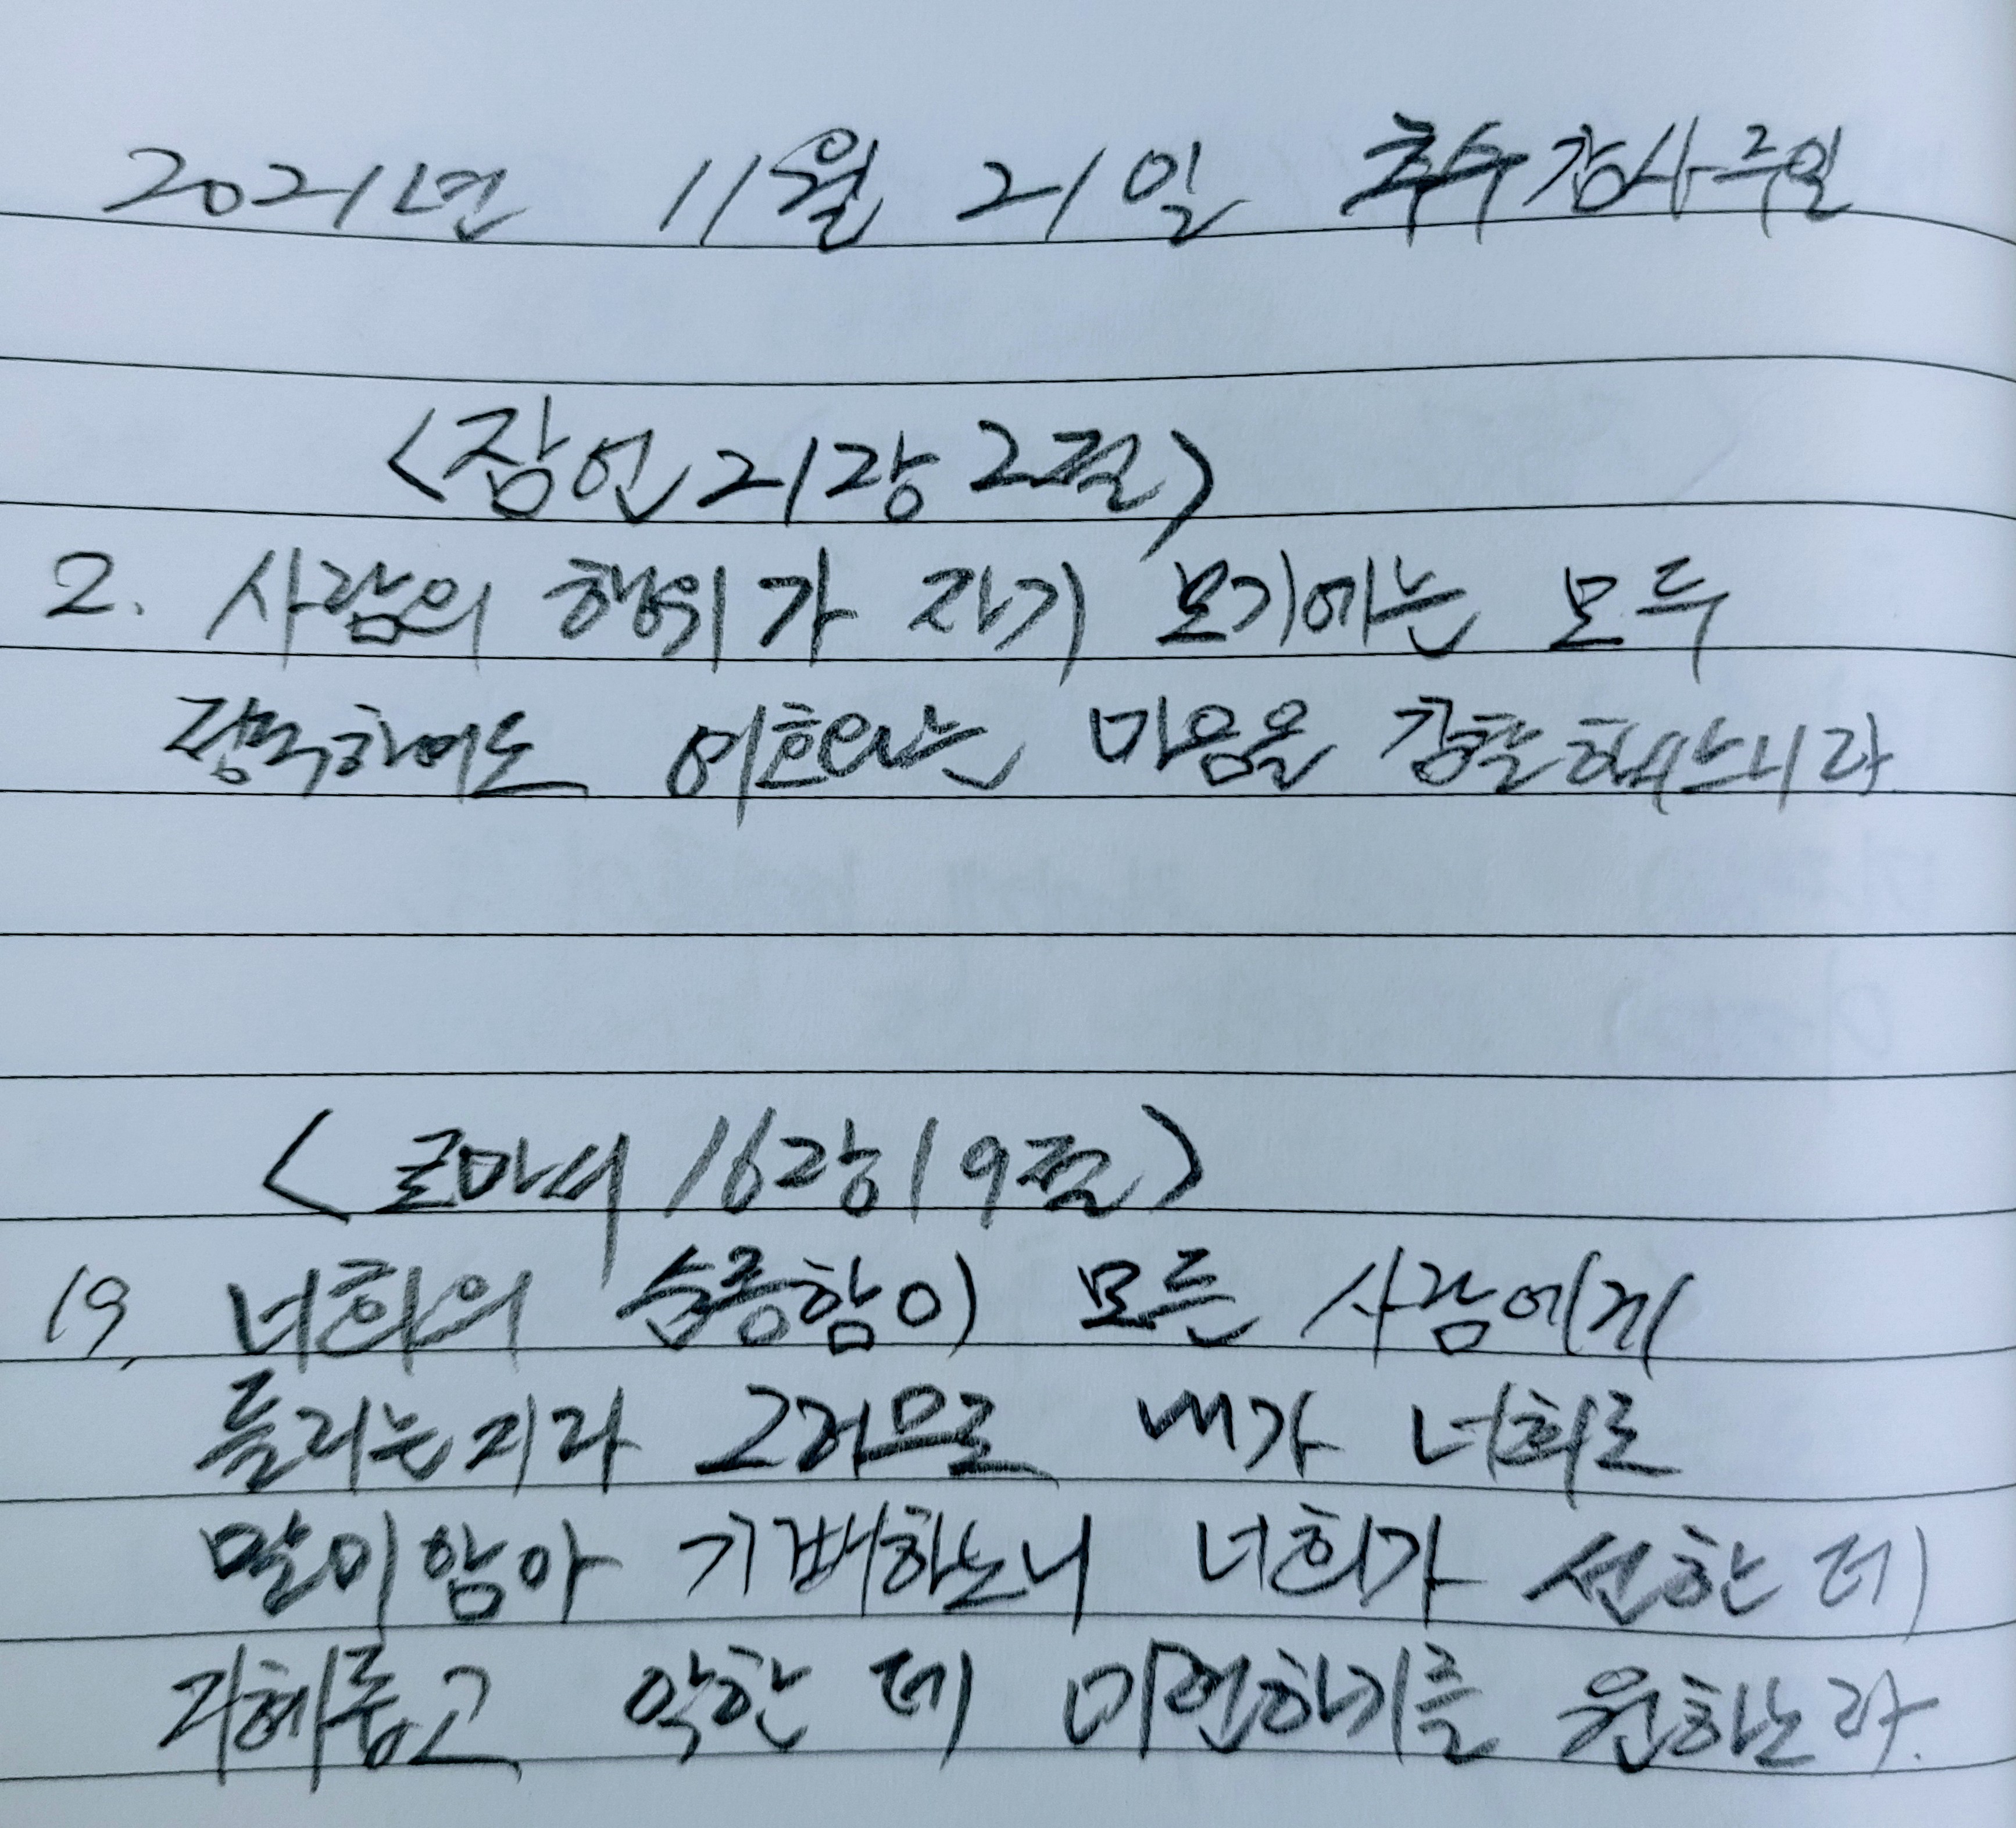 2021년 11월 21일 추수감사주일
<잠언 21장 2절>
2. 사람의 행위가 자기 보기에는 모두
정직하여도 여호와는 마음을 감찰하시느니라
<로마서 16장 19절>
19. 너희의 순종함이 모든 사람에게
들리는지라 그러므로 내가 너희로
말미암아 기뻐하노니 너희가 선한 데
지혜롭고 악한 데 미련하기를 원하노라.